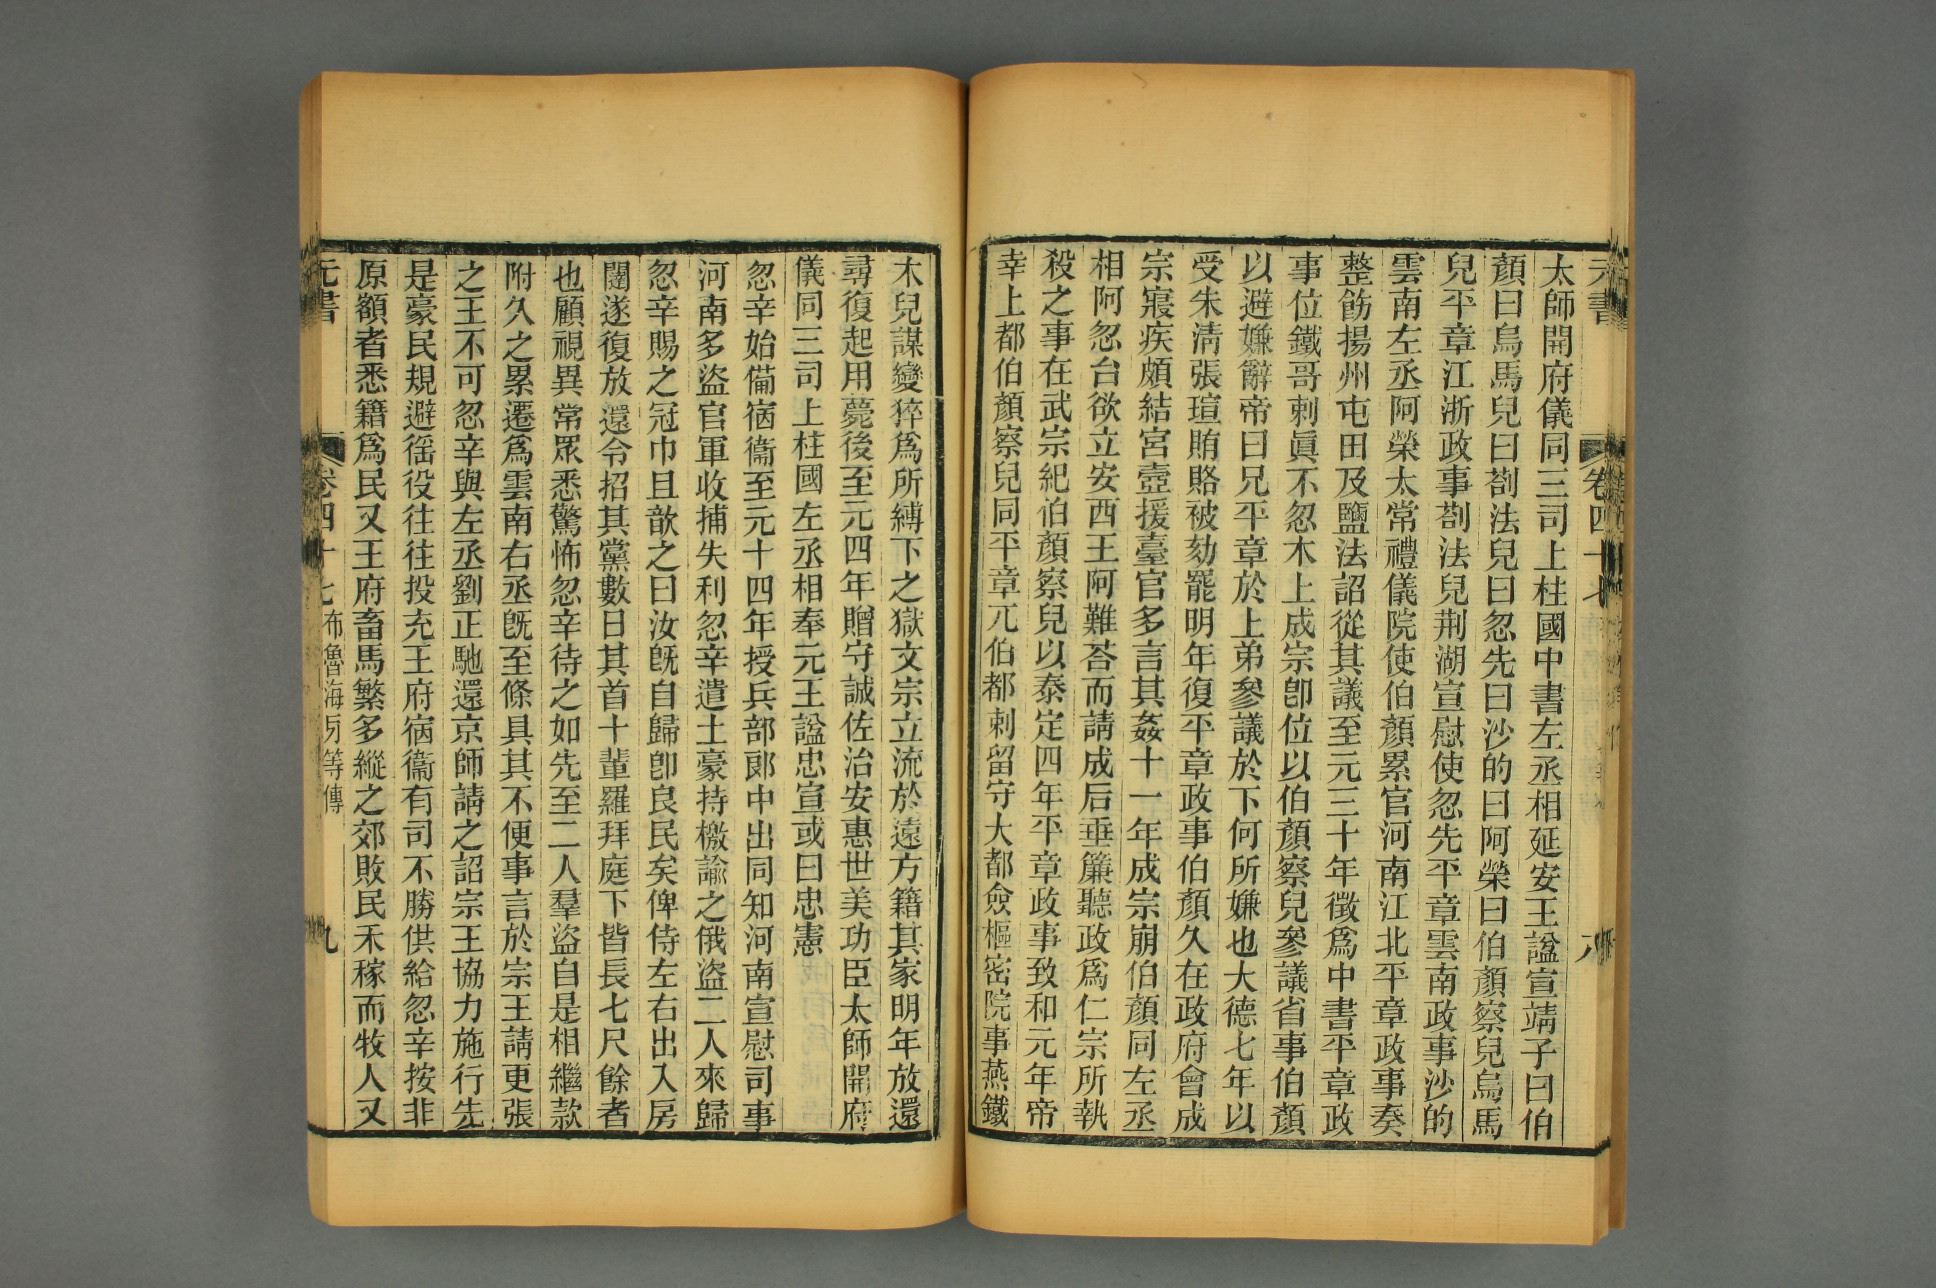 元書
卷四十七
八
太師開府儀同三司上柱國中書左丞相延安王諡宣靖子曰伯
顏曰烏馬兒曰劄法兒曰忽先曰沙的曰阿榮曰伯顏察兒烏馬
兒平章江浙政事劄法兒荆湖宣慰使忽先平章雲南政事沙的
雲南左丞阿榮太常禮儀院使伯顏累官河南江北平章政事奏
整飭揚州屯田及鹽法詔從其議至元三十年徵爲中書平章政
事位鐵哥剌眞不忽木上成宗卽位以伯顏察兒參議省事伯顏
以避嫌辭帝曰兄平章於上弟參議於下何所嫌也大德七年以
受朱淸張瑄賄賂被劾罷明年復平章政事伯顏久在政府會成
宗寢疾頗結宮壼援臺官多言其姦十一年成宗崩伯顏同左丞
相阿忽台欲立安西王阿難荅而請成后垂簾聽政爲仁宗所執
殺之事在武宗紀伯顏察兒以泰定四年平章政事致和元年帝
幸上都伯顏察兒同平章兀伯都剌留守大都僉樞密院事燕鐵
木兒謀變猝爲所縛下之獄文宗立流於遠方籍其家明年放還
尋復起用薨後至元四年贈守誠佐治安惠世美功臣太師開府
儀同三司上柱國左丞相奉元王諡忠宣或曰忠憲
忽辛始備宿衞至元十四年授兵部郎中出同知河南宣慰司事
河南多盜官軍收捕失利忽辛遣土豪持檄諭之俄盜二人來歸
忽辛賜之冠巾且歆之曰汝旣自歸卽良民矣俾侍左右出入房
闥遂復放還令招其黨數日其首十輩羅拜庭下皆長七尺餘者
也顧視異常眾悉驚怖忽辛待之如先至二人羣盜自是相繼款
附久之累遷爲雲南右丞旣至條具其不便事言於宗王請更張
之王不可忽辛與左丞劉正馳還京師請之詔宗王協力施行先
是豪民規避徭役往往投充王府宿衞有司不勝供給忽辛按非
原額者悉籍爲民又王府畜馬繁多縱之郊敗民禾稼而牧人又
元書
卷四十七
布魯海牙等傳
九